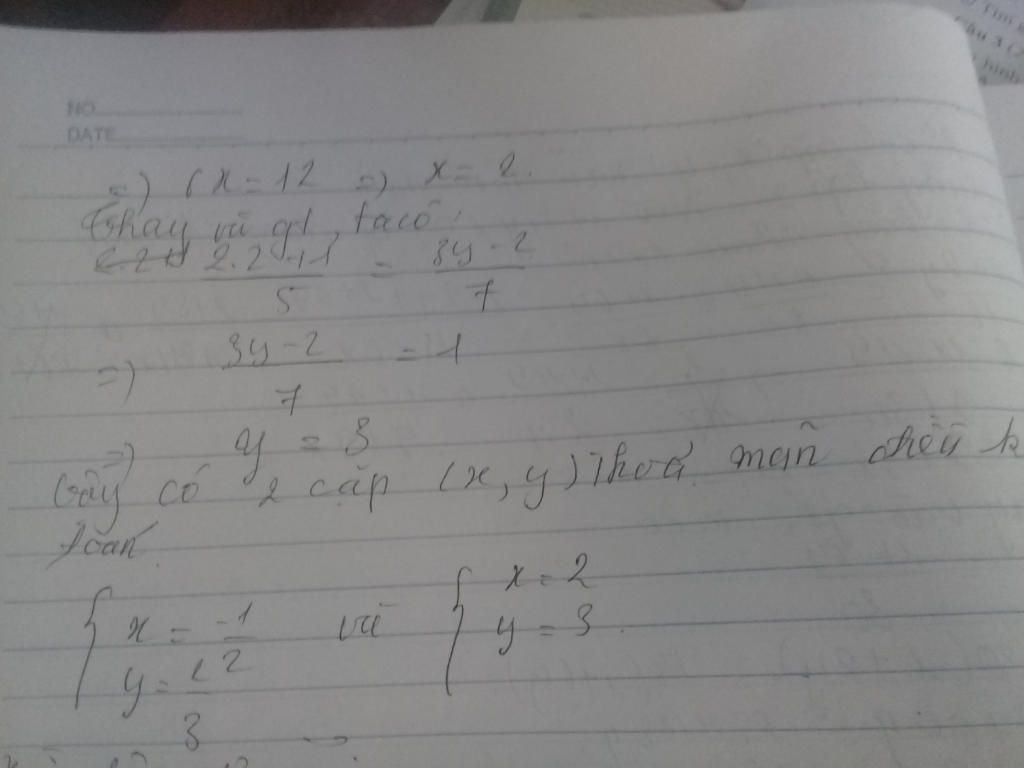 NO
DATE
=) 6x = 12 =) x = 2.
Thay vào gt, ta có:
2.2+1 / 5 = 3y - 2 / 7
=) 3y - 2 / 7 = 1
=) y = 3
Vậy có 2 cặp (x, y) thoả mãn điều k
toán
{ x = -1/2 và { x = 2
y = 2/3 y = 3.